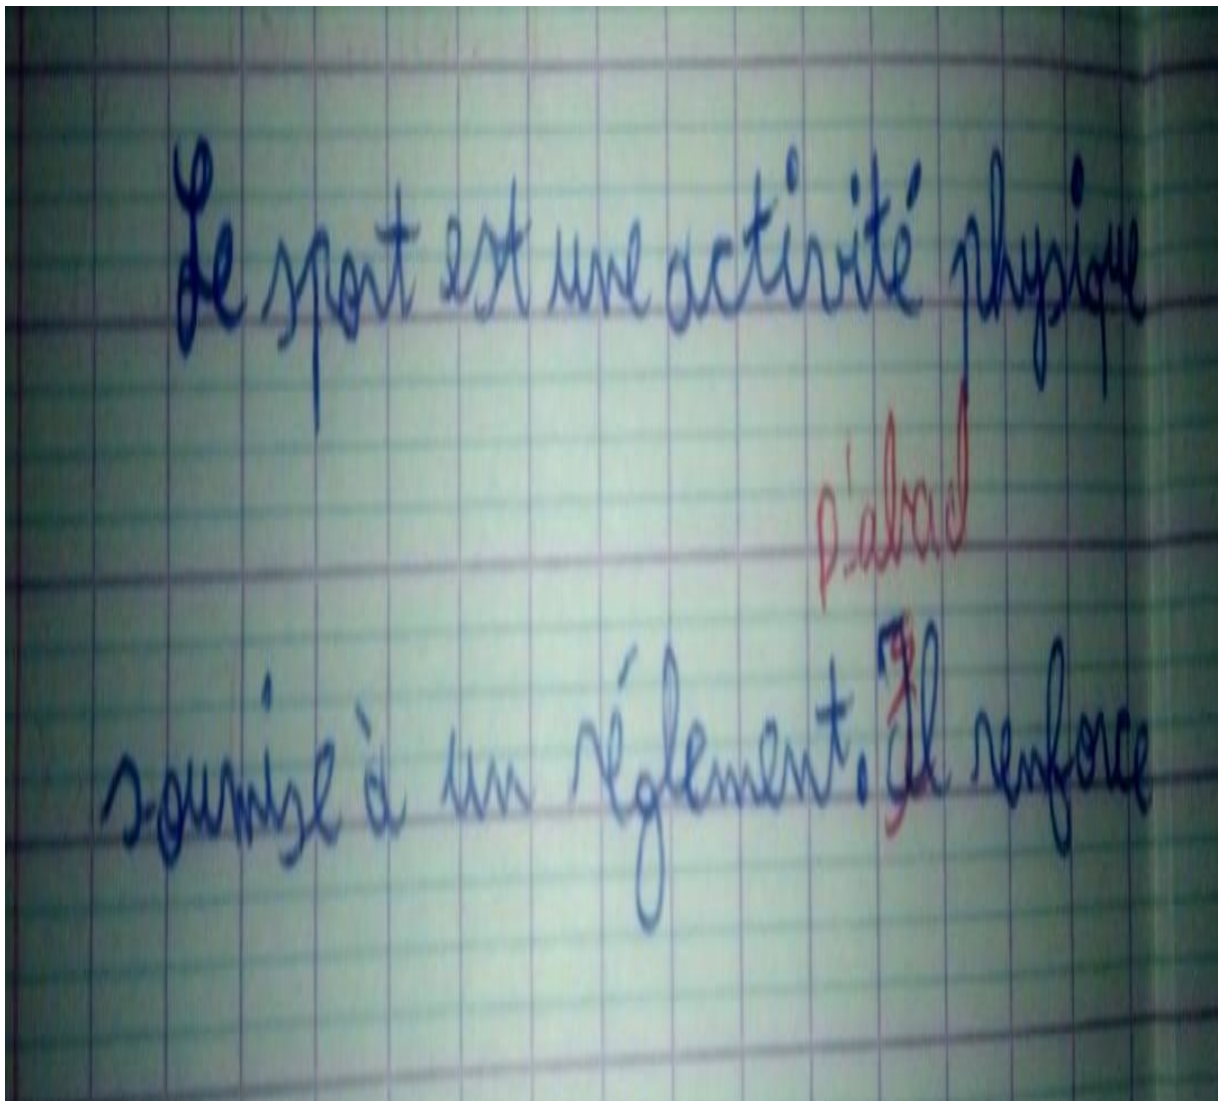 Le sport est une activité physique
d'abord
soumise à un réglement. Il renforce